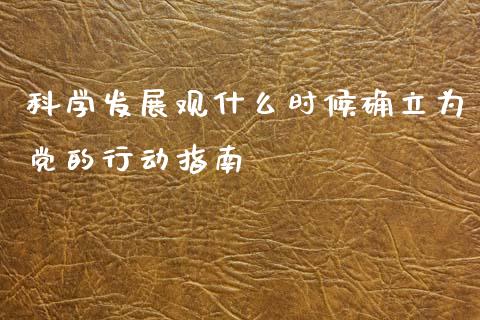 科学发展观什么时候确立为
党的行动指南